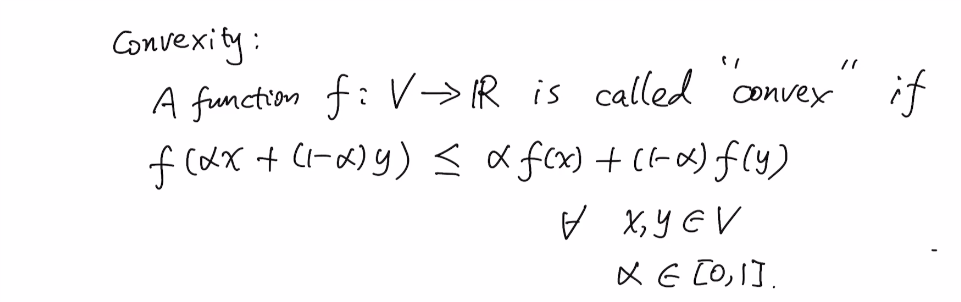 Convexity:
A function f: V → ℝ is called "convex" if
f(αx + (1-α)y) ≤ αf(x) + (1-α)f(y)
∀ x, y ∈ V
α ∈ [0,1].